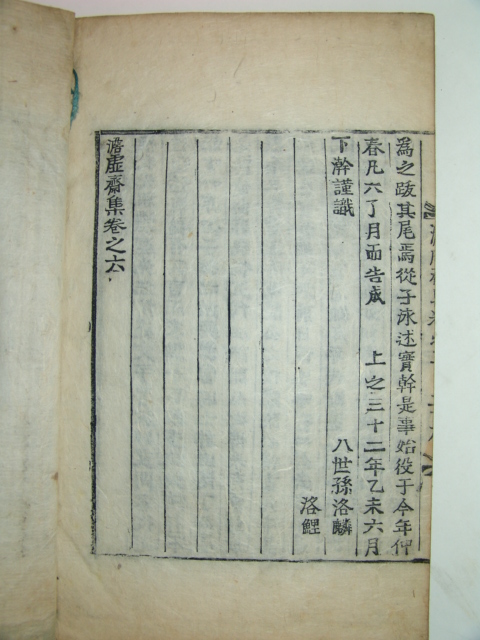 爲之跋其尾焉從子泳述實幹是事始役于今年仲
春凡六了月而告成 上之三十二年乙未六月
下澣謹識 八世孫洛麟
洛鯉
澹虛齋集卷之六